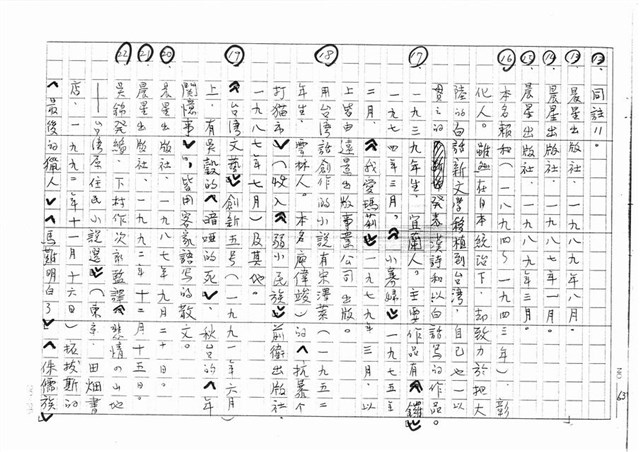 12. 同註11。
13. 晨星出版社，一九八九年八月。
14. 晨星出版社，一九八七年一月。
15. 晨星出版社，一九八九年三月。
16. 本名賴和（一八九四～一九四三年），彰
化人。雖然在日本統治下，却致力於把大
陸的白話新文學移植到台灣，自己也一以
貫之的發表漢詩和以白話寫的作品。
17. 一九三九年生，宜蘭人。主要作品有《鑼》
一九七四年三月，《小寡婦》一九七五年
二月，《我愛瑪莉》一九七九年三月，以
上皆由遠景出版事業公司出版。
18. 用台灣話創作的小說有宋澤萊（一九五二
年生，雲林人。本名廖偉竣）的《抗暴个
打猫市》（收入《弱小民族》前衛出版社，
一九八七年七月）及其他。
19. 《台灣文藝》創新五号（一九九一年六月）
上，有吳穀的《暗唭的死》，秋台的《年
関懷事》，皆用客家語寫的散文。
20. 晨星出版社，一九八七年二月十日。
21. 晨星出版社，一九九二年十二月十五日。
22. 吳錦發編，下村作次郎監譯《悲情の山地
——台灣原住民小說選》（東京，田畑書
店，一九九二年十一月十六日）拓拔斯的
《最後的獵人》《馬難明白了》《侏儒族》
63